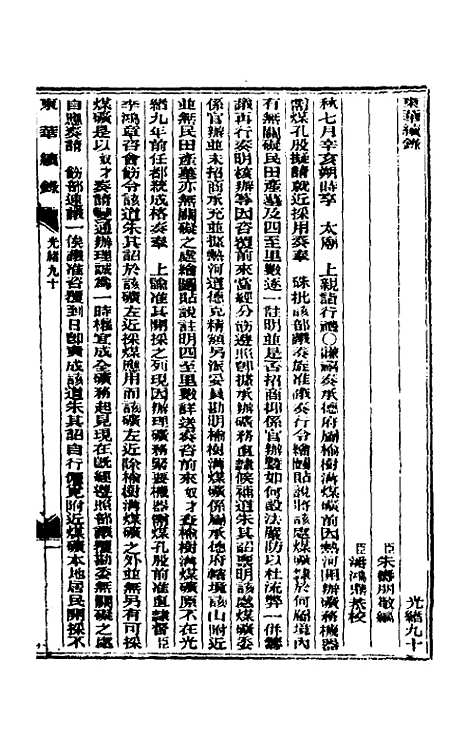 東華續錄
光緒九十
臣朱壽朋敬編
臣潘鴻鼎恭校
秋七月辛亥朔時享　太廟　上親詣行禮○謙禧奏承德府屬榆樹溝煤礦前因熱河開辦礦務機器
需煤孔殷擬請就近採用奏奉　硃批該部議奏旋准議奏行令繪圖貼說將該處煤礦於何廳境內
有無關礙民田產墓及四至里數逐一註明並是否招商抑係官辦暨如何設法嚴防以杜流弊一併籌
議再行奏明核辦等因咨覆前來當經分飭遵照卽據承辦礦務直隸候補道朱其詔稟明該處煤礦委
係官辦並未招商承充並據熱河道德克精額另派妥員勘明榆樹溝煤礦係屬承德府轄境該山附近
並無民田產墓亦無關礙之處繪圖貼說註明四至里數詳送奏咨前來奴才查榆樹溝煤礦原不在光
緒九年前任都統成格奏奉　上諭准其開採之列現因辦理礦務緊要機器需煤孔殷前准直隸督臣
李鴻章咨會飭令該道朱其詔於該礦左近採煤應用而該礦左近除榆樹溝煤礦之外並無另有可採
煤礦是以奴才奏請變通辦理誠爲一時權宜成全礦務起見現在既經遵照部議覆勘委無關礙之處
自應奏請　飭部速議一俟議准咨覆到日卽責成該道朱其詔自行備覓附近煤礦本地居民開採不
東華續錄　光緒九十　一